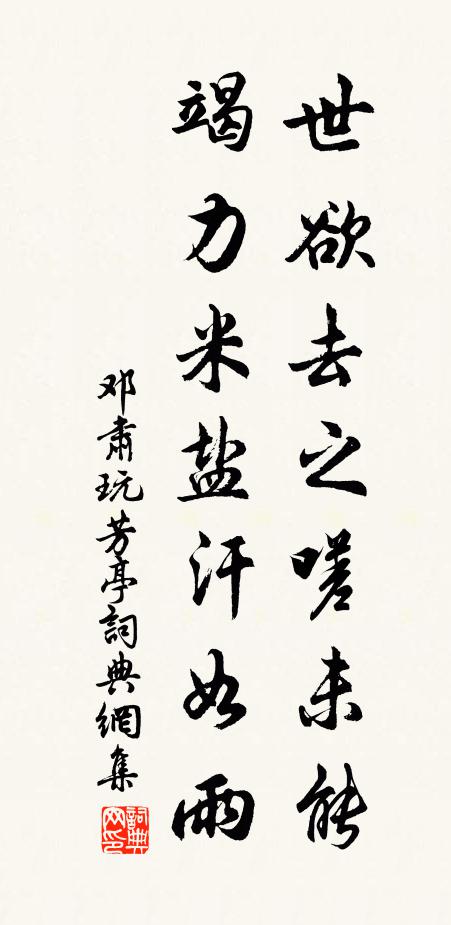 世欲去之嗟未能
竭力米盐汗如雨
邓肃玩芳亭詞典網集
詞典网印